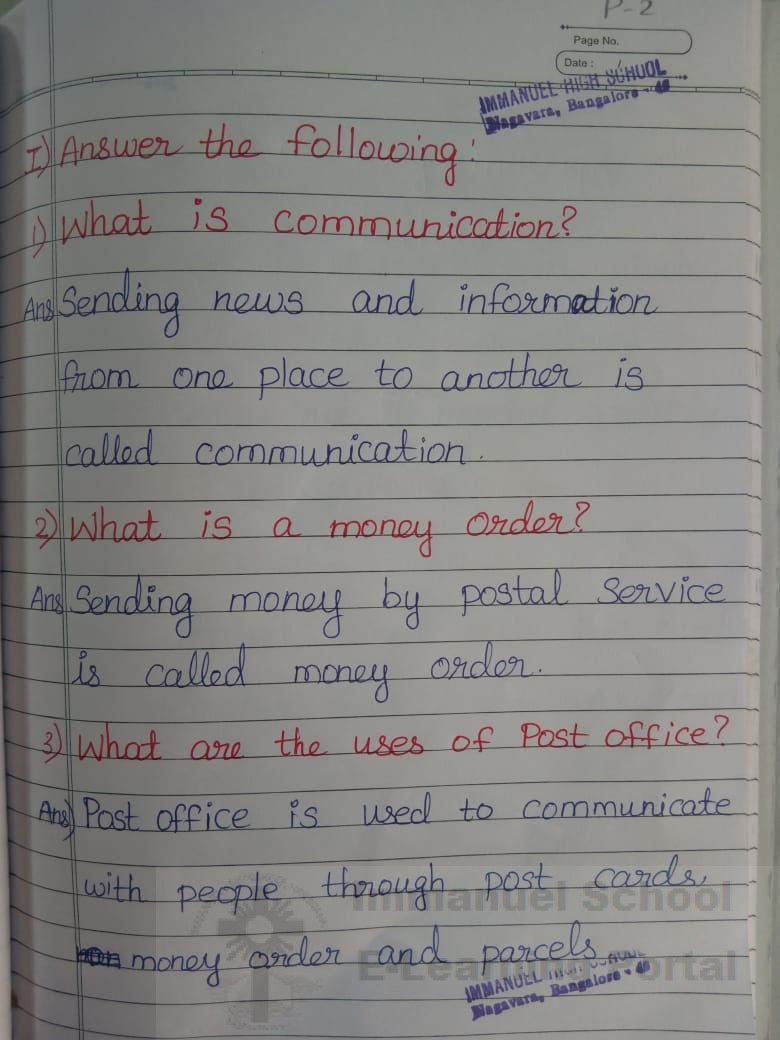 P-2
Page No.
Date : /
IMMANUEL HIGH SCHOOL
Nagavara, Bangalore - 45
I) Answer the following:
1) What is communication?
Ans Sending news and information
from one place to another is
called communication.
2) What is a money order?
Ans Sending money by postal Service
is called money order.
3) What are the uses of Post office?
Ans) Post office is used to communicate
with people through post cards,
money order and parcels
Immanuel School
E-Learning Portal
IMMANUEL HIGH SCHOOL
Nagavara, Bangalore - 45